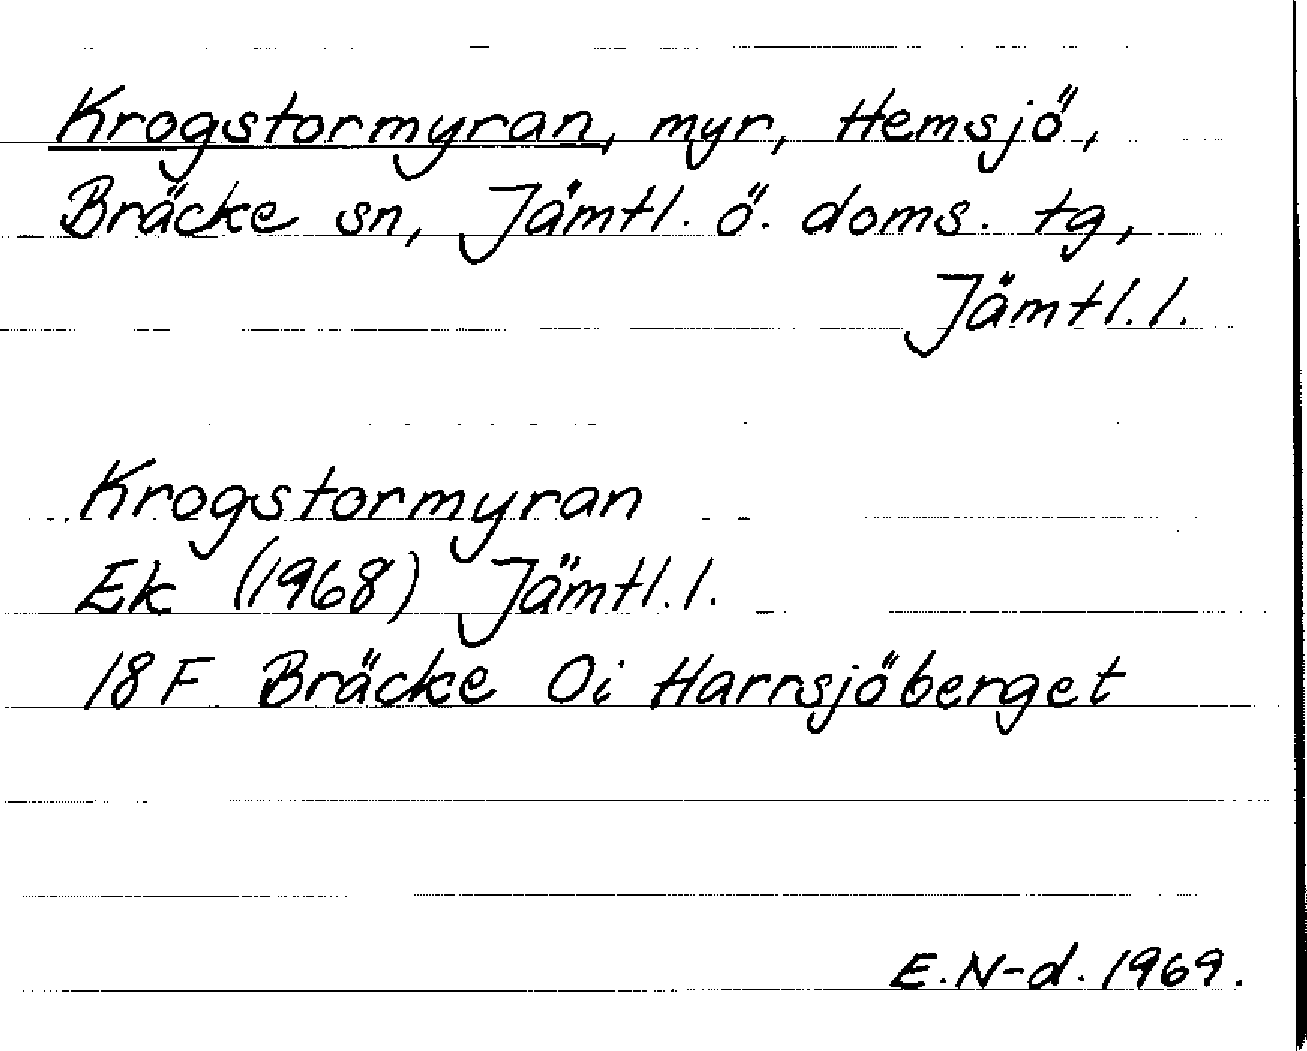 Krogstormyran, myr, Hemsjö,
Bräcke sn, Jämtl. ö. doms. tg,
Jämtl. l.
Krogstormyran
Ek (1968) Jämtl. l.
18 F Bräcke 0i Harrsjöberget
E. N-d. 1969.